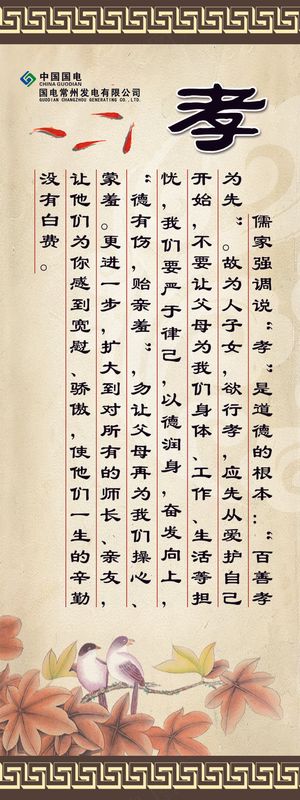 中国国电
CHINA GUODIAN
国电常州发电有限公司
GUODIAN CHANGZHOU GENERATING CO.,LTD.
孝
儒家强调说“孝”是道德的根本：“百善孝
为先”。故为人子女，欲行孝，应先从爱护自己
开始，不要让父母为我们身体、工作、生活等担
忧，我们要严于律己，以德润身，奋发向上，
“德有伤，贻亲羞”，勿让父母再为我们操心、
蒙羞。更进一步，扩大到对所有的师长、亲友，
让他们为你感到宽慰、骄傲，使他们一生的辛勤
没有白费。